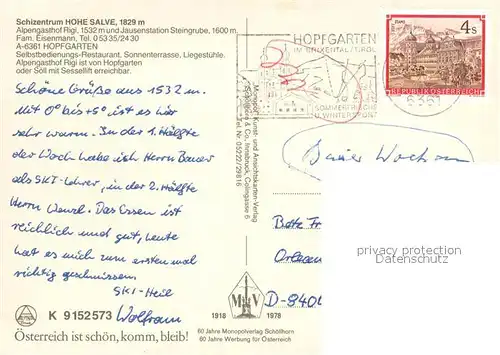 Schizentrum HOHE SALVE, 1829 m
Alpengasthof Rigi, 1532 m und Jausenstation Steingrube, 1600 m
Fam. Eisenmann, Tel. 0 53 35/24 30
A-6361 HOPFGARTEN
Selbstbedienungs-Restaurant, Sonnenterrasse, Liegestühle.
Alpengasthof Rigi ist von Hopfgarten
oder Söll mit Sessellift erreichbar.
Schöne Grüße aus 1532 m.
Mit 0° bis +5° ist es hier
sehr warm. In der 1. Hälfte
der Woche habe ich Herrn Bauer
als SKI-Lehrer, in der 2. Hälfte
Herrn Wenzl. Das Essen ist
reichlich und gut, heute
hat es mich zum ersten mal
richtig geschmissen.
SKI-Heil
Wolfram
K 9152573
Österreich ist schön, komm, bleib!
HOPFGARTEN
IM BRIXENTAL/TIROL
SOMMERFRISCHE
U. WINTERSPORT
STAMS
4 S
REPUBLIK ÖSTERREICH
6361
Monopol Kunst- und Ansichtskarten-Verlag
Schöllhorn & Co., Innsbruck, Colingasse 6
Tel. Nr. 05222/29816
Bette
D-840
privacy protection
Datenschutz
M V
1918 1978
60 Jahre Monopolverlag Schöllhorn
60 Jahre Werbung für Österreich